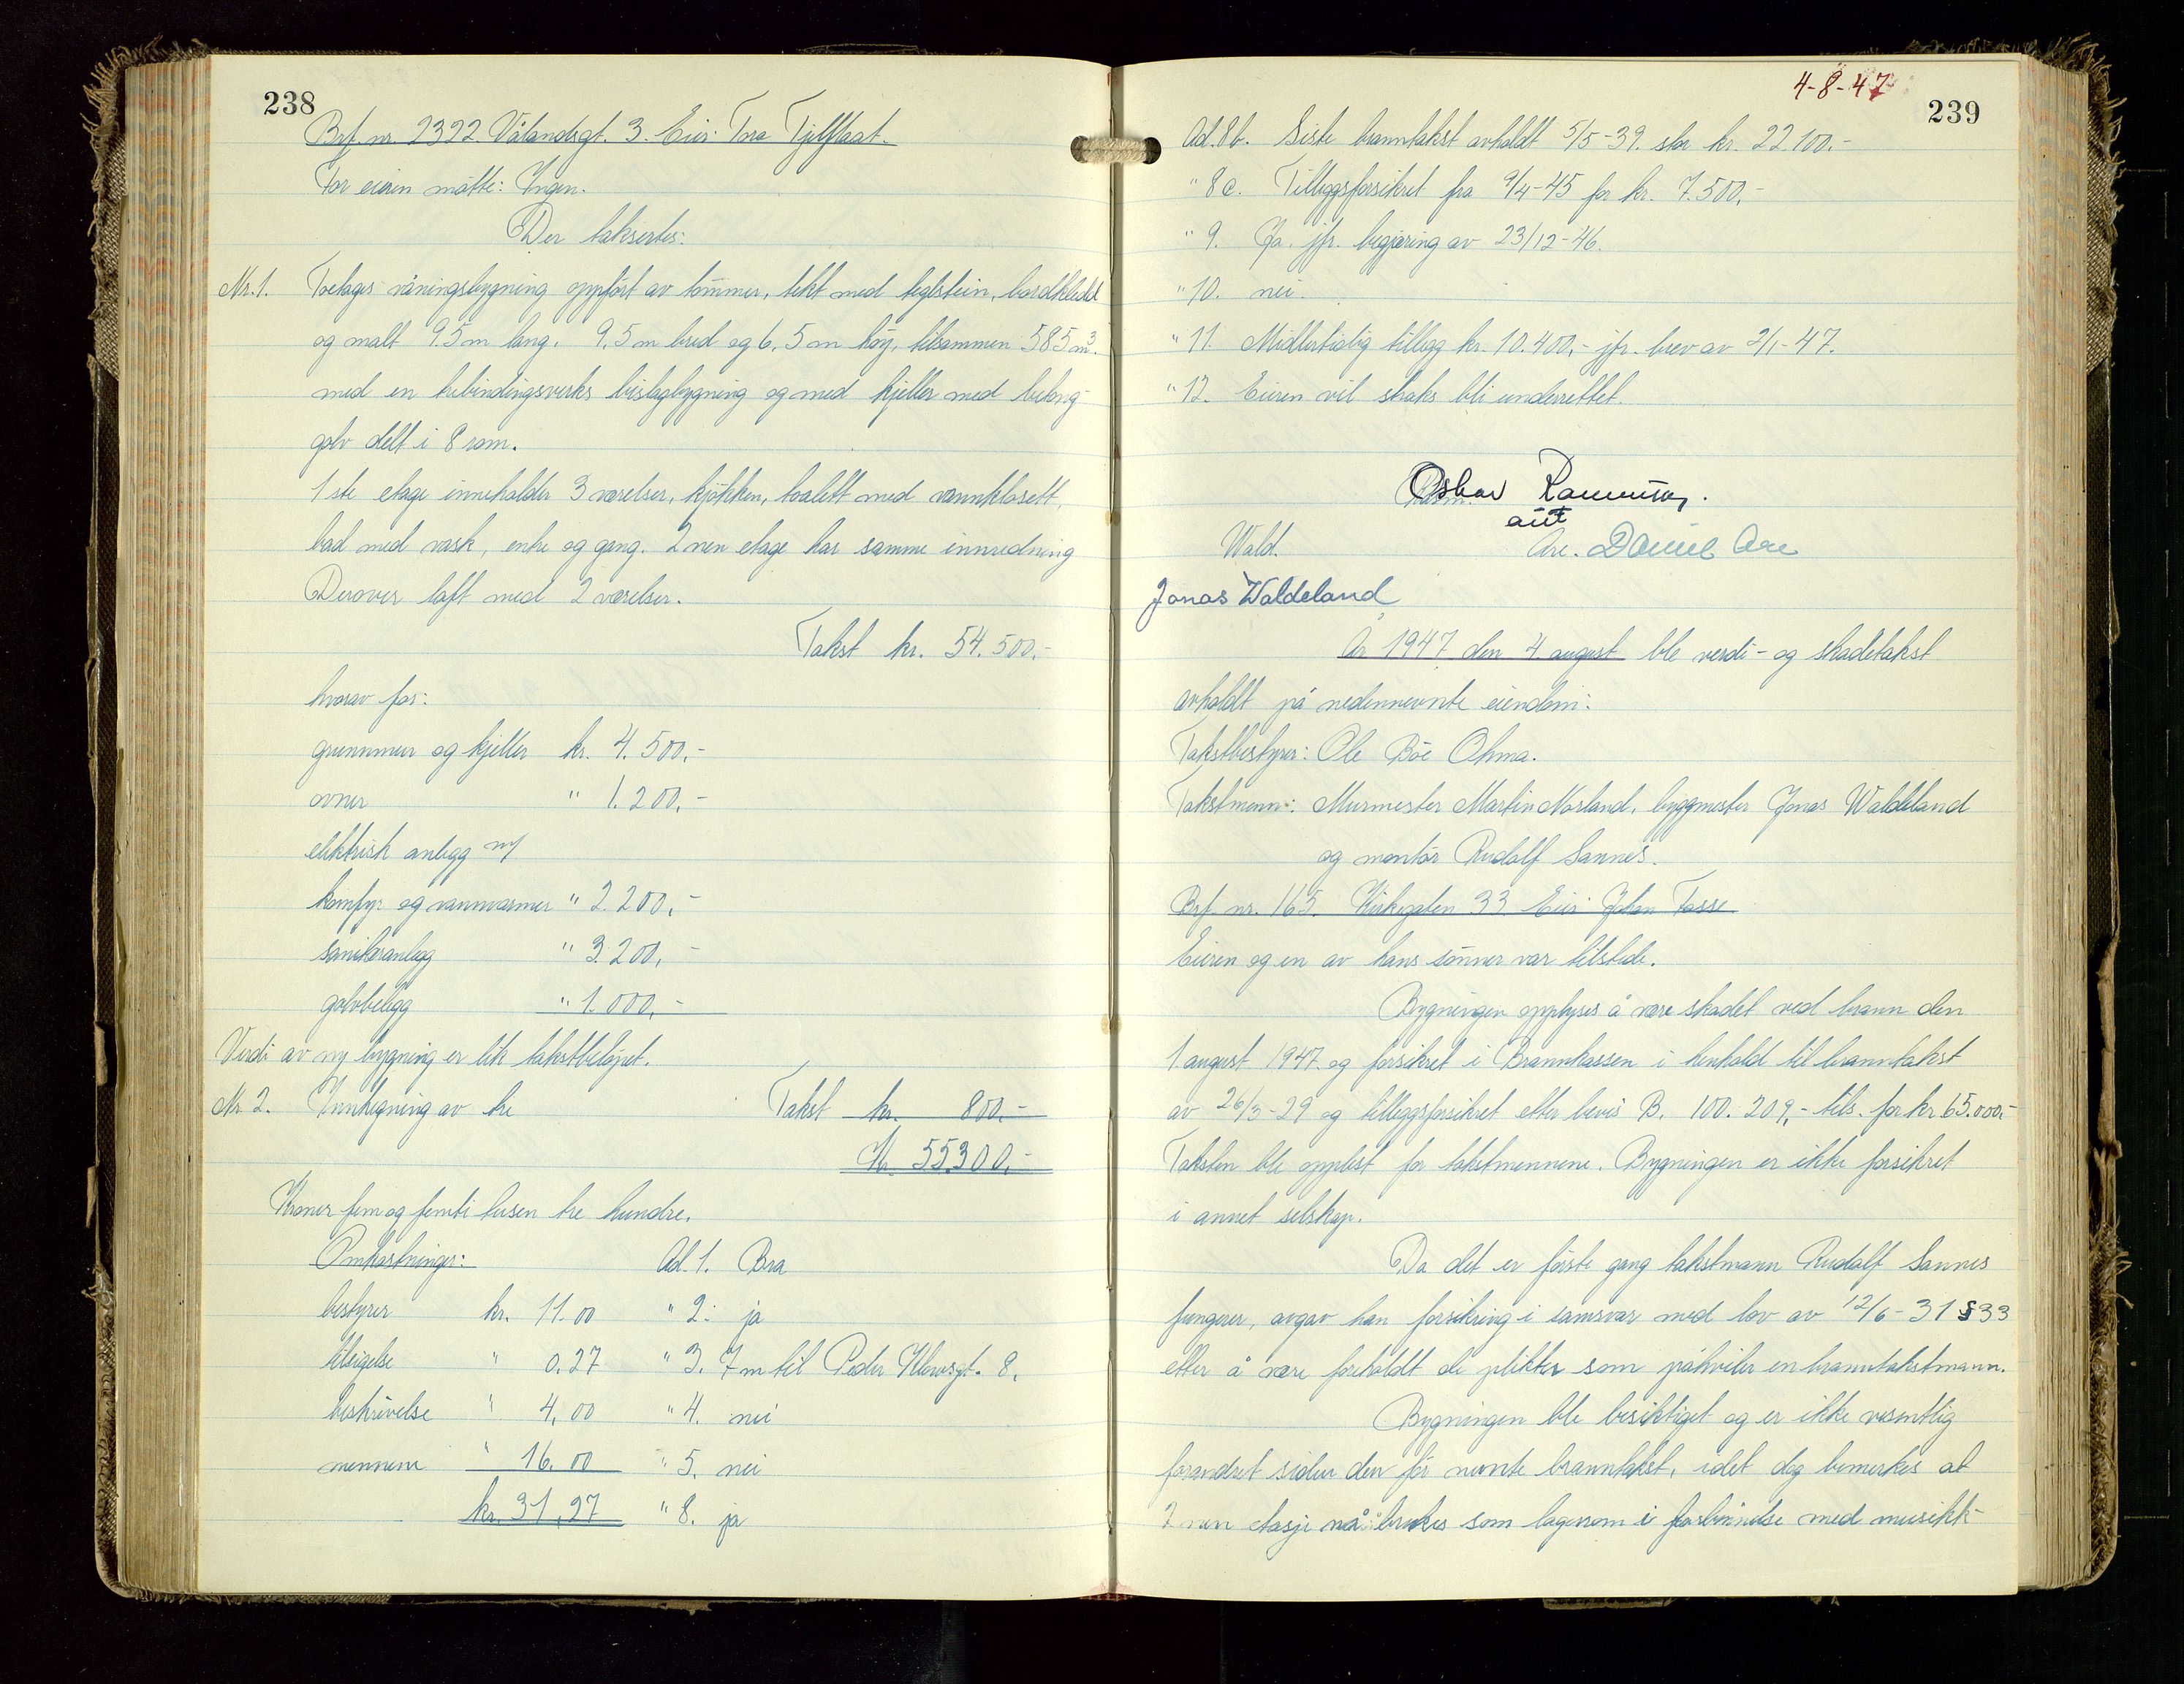 238
Brf. nr. 2322. Vålandsgt. 3. Eier: Tora Tjelflaat.
For eieren møtte: Ingen.
Der taksertes:
Nr. 1. Toetages våningsbygning oppført av tømmer, tekt med teglstein, bordkledd
og malt 9.5 m lang, 9,5 m bred og 6,5 m høy, tilsammen 585 m³.
med en bebindingsverks bislagbygning og med kjeller med betong-
golv delt i 8 rom.
1ste etage inneholder 3 værelser, kjøkken, toalett med vannklosett,
bad med vask, entre og gang. 2nen etage har samme innredning
Derover loft med 2 værelser.
Takst kr. 54.500.-
hvorav for:
grunnmur og kjeller kr. 4.500.-
ovner " 1.200.-
elektrisk anlegg m/
komfyr og vannvarmer " 2.200,-
saniteranlegg " 3.200,-
golvbelegg " 1.000,-
Verdi av ny bygning er lik takstbeløpet.
Nr 2. Innhegning av tre Takst kr. 800.-
Kr. 55300.-
Kroner fem og femti tusen tre hundre.
Omkostninger: Ad. 1. Bra
bestyrer kr. 11.00 " 2. ja
tilsigelse " 0.27 " 3. 7 m til Peder Klowsgt. 8.
beskrivelse " 4,00 " 4. nei
mennene " 16.00 " 5. nei
kr. 31,27 " 8. ja
4-8-47
239
Ad. 8b. Siste branntakst avholdt 5/5-39. stor kr. 22 100.-
" 8c. Tilleggsforsikret fra 9/4-45 for kr. 7.500,-
" 9. Ja. jfr. begjæring av 23/12-46.
" 10. nei.
" 11. Midlertidig tillegg kr. 10.400,- jfr. brev av 2/1-47.
" 12. Eieren vil straks bli underrettet.
Oskar
aut
Wald. Are. Daniel Are
Jonas Waldeland
År 1947 den 4. august ble verdi- og skadetakst
avholdt på nedennevnte eiendom:
Takstbestyrer: Ole Bøe Ohma.
Takstmenn: Murmester Martin Norland, byggmester Jonas Waldeland
og montør Rudolf Sannes.
Brf. nr. 165. Kirkegaten 33 Eier: Johan Tosse
Eieren og en av hans sønner var tilstede.
Bygningen opplyses å være skadet ved brann den
1. august 1947 og forsikret i Brannkassen i henhold til branntakst
av 26/3-29 og tilleggsforsikret etter bevis B. 100.209,- tils. for kr. 65.000,-
Taksten ble opplest for takstmennene. Bygningen er ikke forsikret
i annet selskap.
Da det er første gang takstmann Rudolf Sannes
fungerer, avgav han forsikring i samsvar med lov av 12/6-31 § 33
etter å være foreholdt de plikter som påhviler en branntakstmann.
Bygningen ble besiktiget og er ikke vesentlig
forandret siden den før nevnte branntakst, idet dog bemerkes at
2nen etasje nå brukes som lagerrom i forbindelse med musikk-